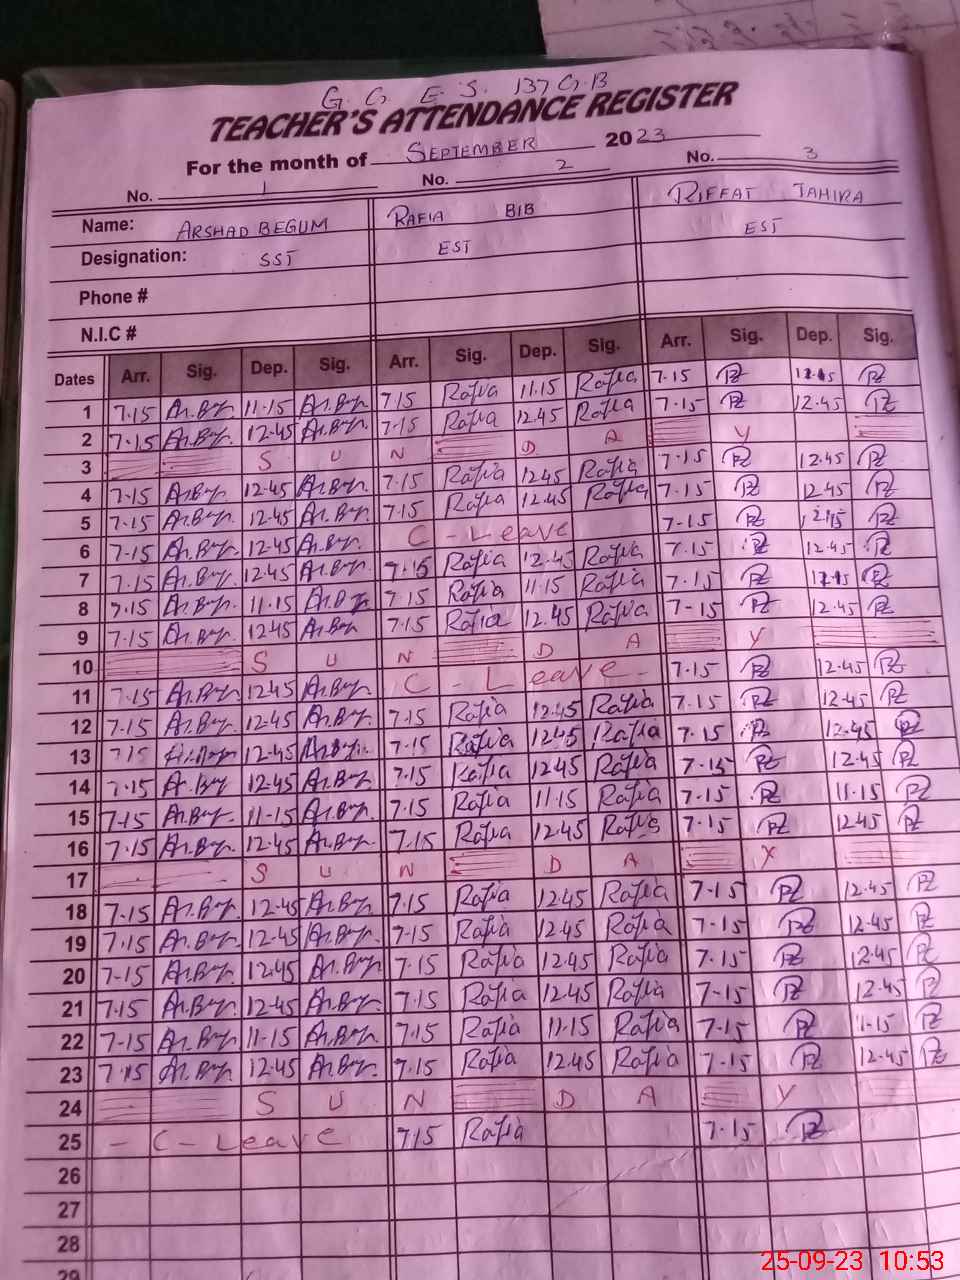 G. G. E. S. 137 G.B
TEACHER'S ATTENDANCE REGISTER
For the month of SEPTEMBER 2023
No. 1 No. 2 No. 3
Name: ARSHAD BEGUM RAFIA BIB RIFFAT TAHIRA
Designation: SST EST EST
Phone #
N.I.C #
Dates Arr. Sig. Dep. Sig. Arr. Sig. Dep. Sig. Arr. Sig. Dep. Sig.
1 7.15 Ar.Beg. 11.15 Ar.Beg. 7.15 Rafia 11.15 Rafia 7.15 RZ RZ
2 7.15 Ar.Beg. 12.45 Ar.Beg. 7.15 Rafia 12.45 Rafia 7.15 RZ 12.45 RZ
3 S U N D A Y
4 7.15 Ar.Beg. 12.45 Ar.Beg. 7.15 Rafia 12.45 Rafia 7.15 RZ 12.45 RZ
5 7.15 Ar.Beg. 12.45 Ar.Beg. 7.15 Rafia 12.45 Rafia 7.15 RZ 12.45 RZ
6 7-15 Ar.Beg. 12.45 Ar.Beg. C - Leave 7-15 RZ 12.45 RZ
7 7.15 Ar.Beg. 12.45 Ar.Beg. 7.15 Rafia 12.45 Rafia 7.15 RZ 12.45 RZ
8 7.15 Ar.Beg. 11.15 Ar.Beg. 7.15 Rafia 11.15 Rafia 7.15 RZ RZ
9 7.15 Ar.Beg. 12.45 Ar.Beg. 7.15 Rafia 12.45 Rafia 7-15 RZ 12.45 RZ
10 S U N D A Y
11 7.15 Ar.Beg. 12.45 Ar.Beg. C - Leave - 7.15 RZ 12.45 RZ
12 7.15 Ar.Beg. 12.45 Ar.Beg. 7.15 Rafia 12.45 Rafia 7.15 RZ 12.45 RZ
13 7.15 Ar.Beg. 12.45 Ar.Beg. 7.15 Rafia 12.45 Rafia 7.15 RZ 12.45 RZ
14 7.15 Ar.Beg. 12.45 Ar.Beg. 7.15 Rafia 12.45 Rafia 7.15 RZ 12.45 RZ
15 7-15 Ar.Beg. 11-15 Ar.Beg. 7.15 Rafia 11.15 Rafia 7.15 RZ 11.15 RZ
16 7.15 Ar.Beg. 12.45 Ar.Beg. 7.15 Rafia 12.45 Rafia 7.15 RZ 12.45 RZ
17 S U N D A Y
18 7.15 Ar.Beg. 12.45 Ar.Beg. 7.15 Rafia 12.45 Rafia 7.15 RZ 12.45 RZ
19 7.15 Ar.Beg. 12.45 Ar.Beg. 7.15 Rafia 12.45 Rafia 7.15 RZ 12.45 RZ
20 7-15 Ar.Beg. 12.45 Ar.Beg. 7.15 Rafia 12.45 Rafia 7.15 RZ 12.45 RZ
21 7.15 Ar.Beg. 12.45 Ar.Beg. 7.15 Rafia 12.45 Rafia 7-15 RZ 12.45 RZ
22 7-15 Ar.Beg. 11-15 Ar.Beg. 7.15 Rafia 11.15 Rafia 7.15 RZ 11-15 RZ
23 7.15 Ar.Beg. 12.45 Ar.Beg. 7.15 Rafia 12.45 Rafia 7-15 RZ 12.45 RZ
24 S U N D A Y
25 - C - Leave 7.15 Rafia 7.15 RZ
26
27
28
29
25-09-23 10:53